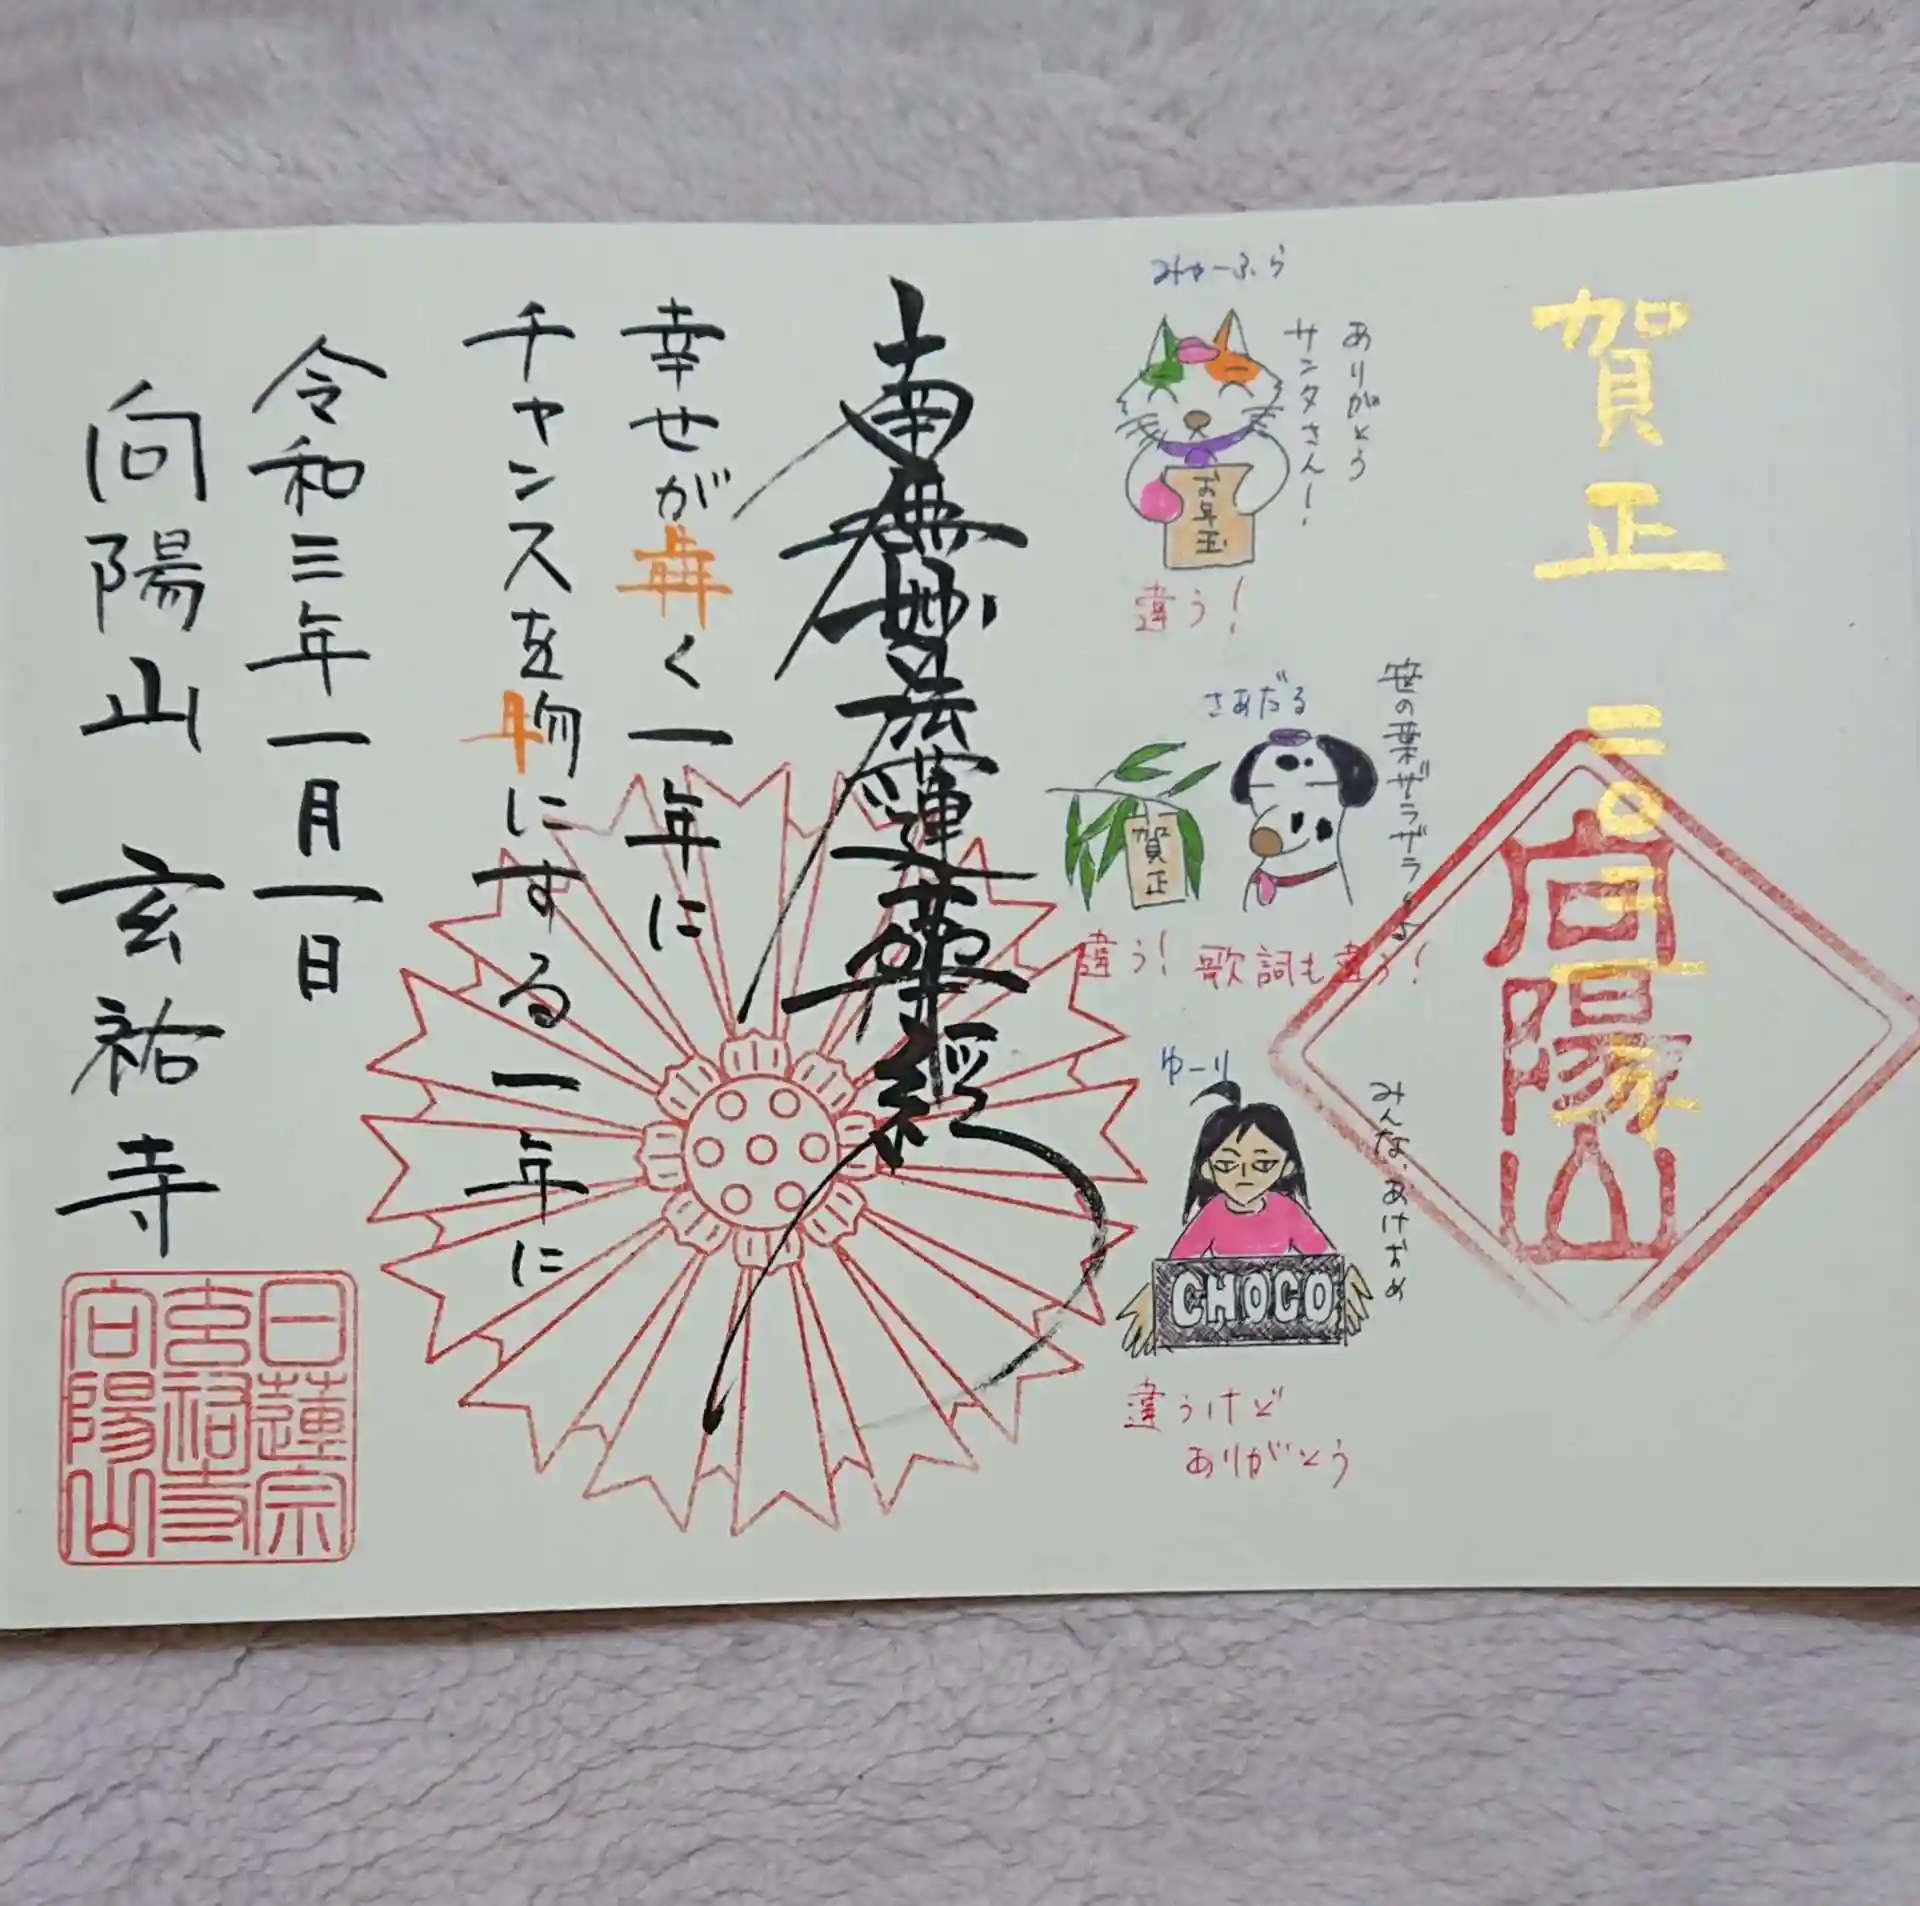 賀正 二〇二一
向陽山
みゃーふら
ありがとう
サンタさん!
お年玉
違う!
さあだる
笹の葉ザラザラ
賀正
違う! 歌詞も違う!
ゆーり
みんな、あけおめ
CHOCO
違うけど
ありがとう
南無妙法蓮華経
幸せが犇く一年に
チャンスを物にする一年に
令和三年一月一日
向陽山 玄祐寺
日蓮宗
玄祐寺
向陽山